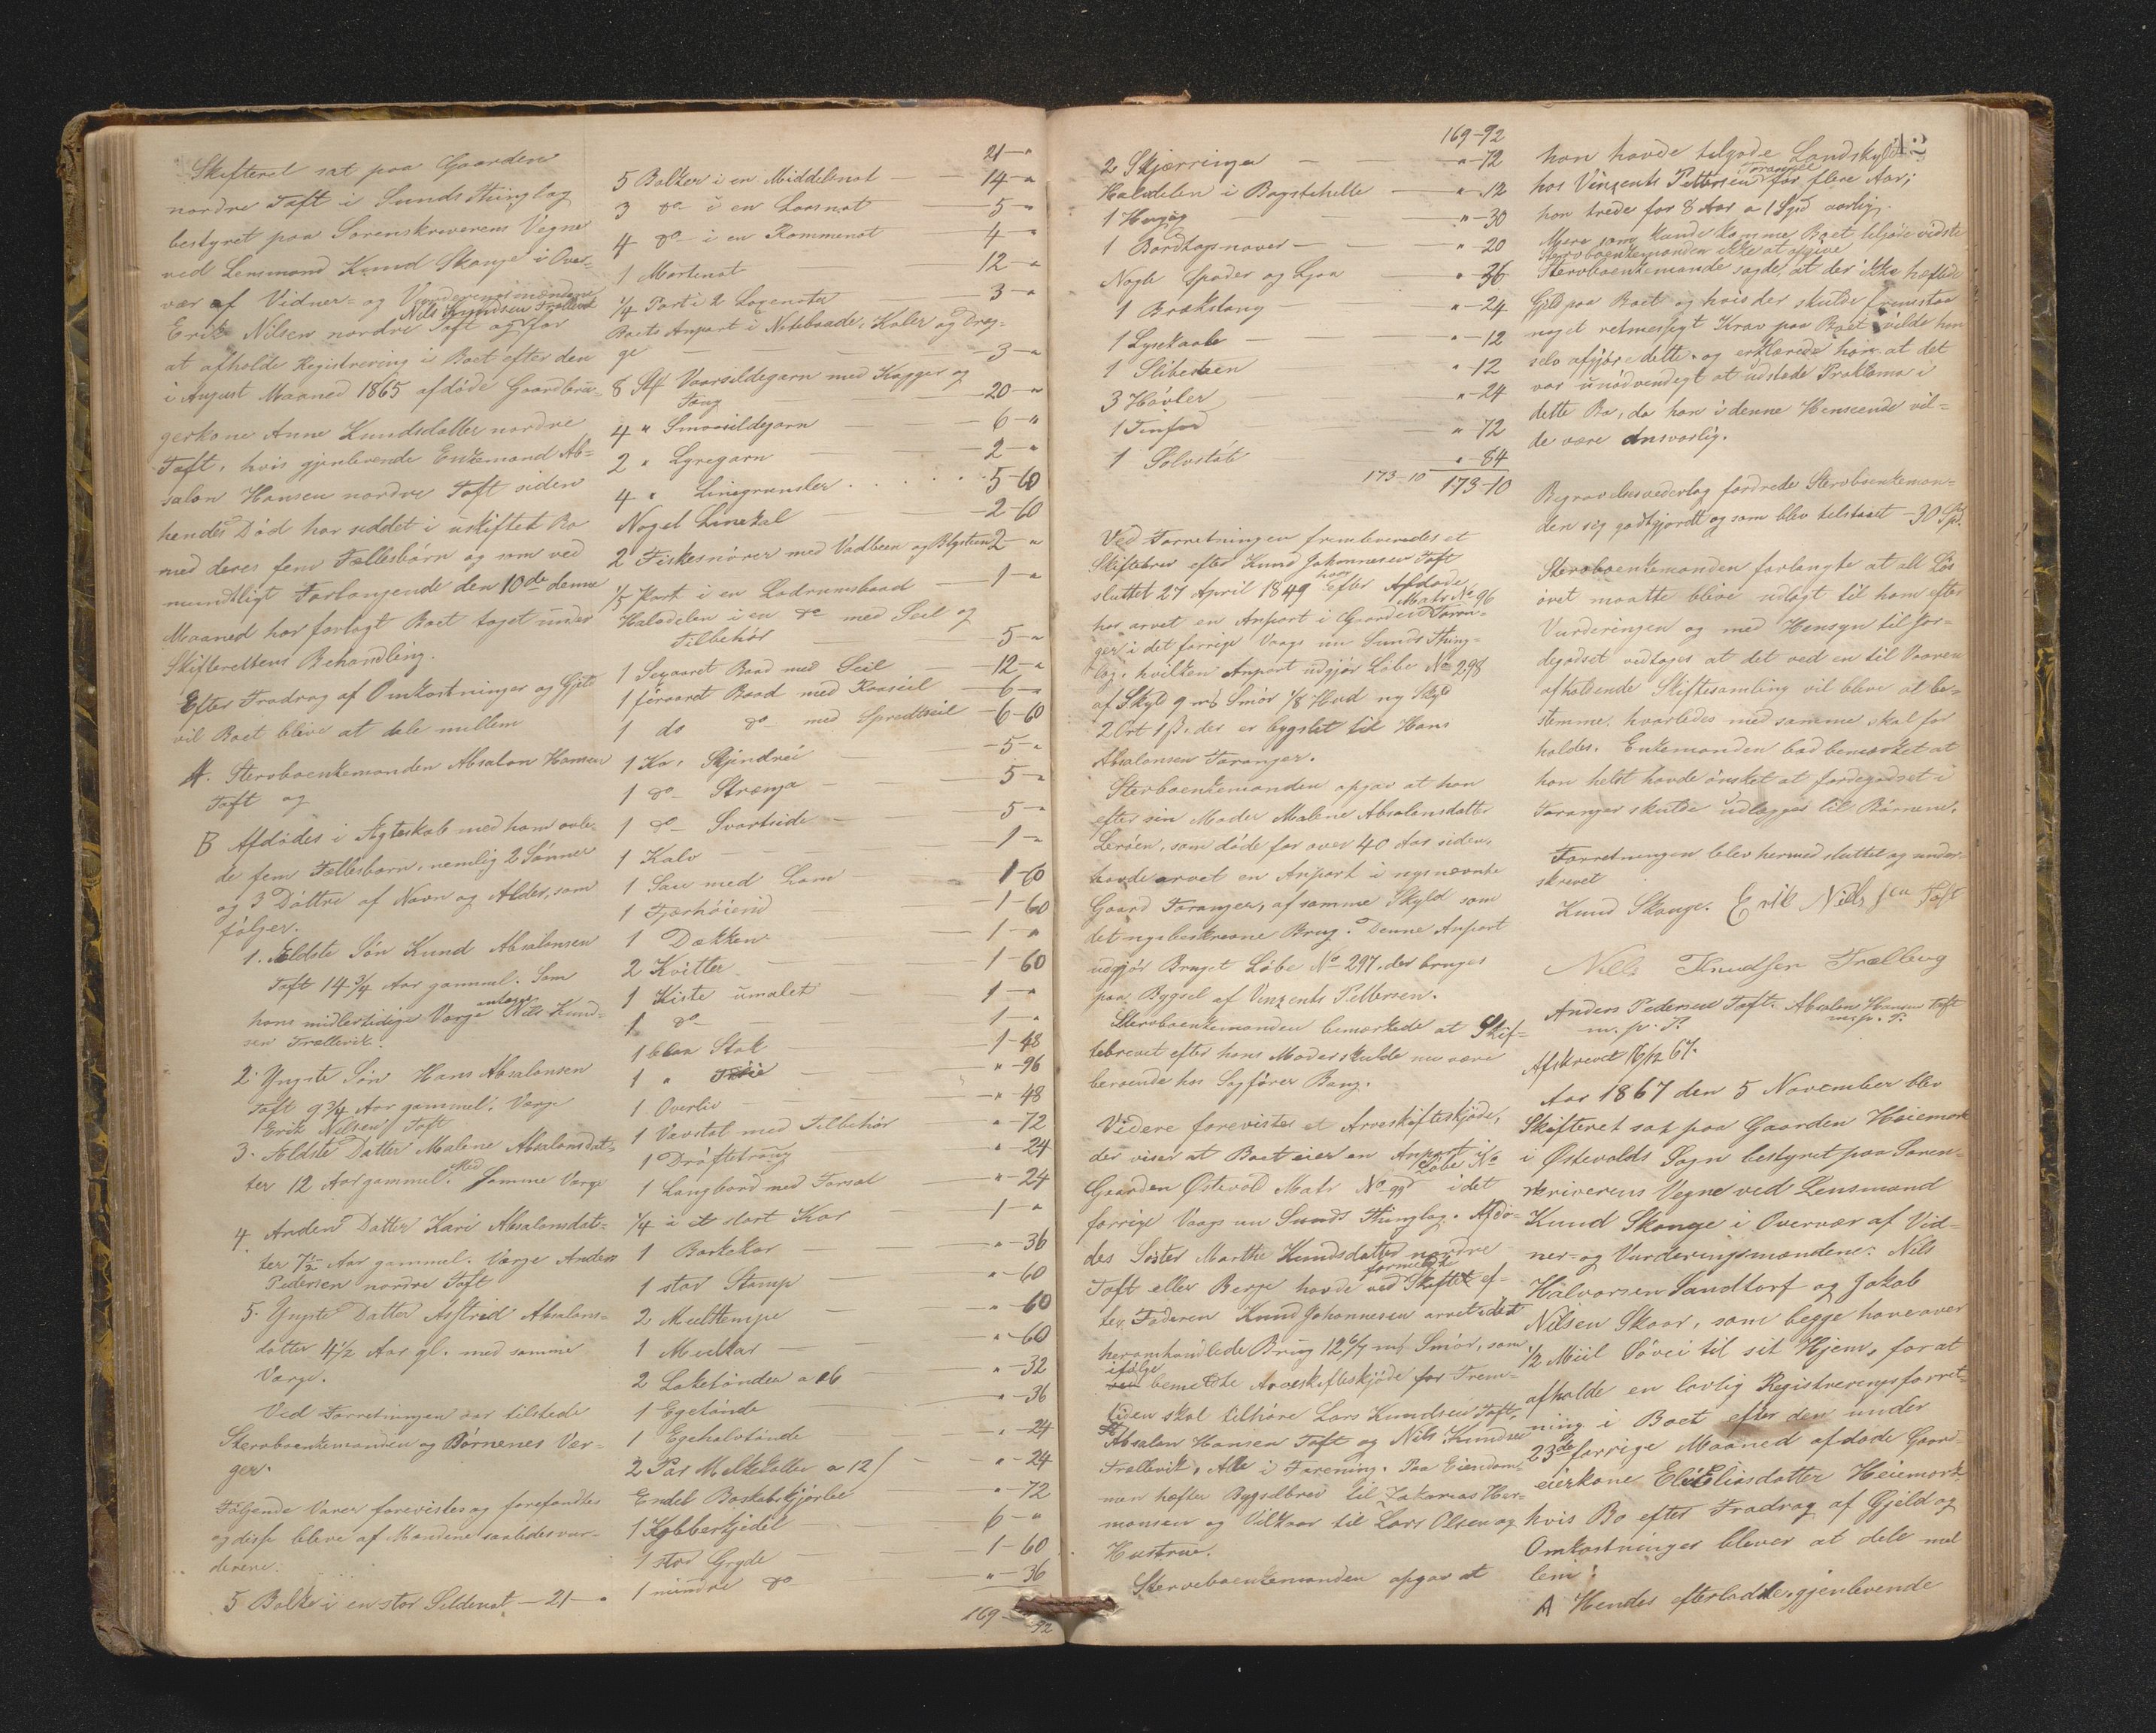 Skifteret sat paa Gaarden
nordre Toft i Sunds Thinglag
bestyret paa Sorenskriverens Vegne
ved Lensmand Knud Skange i Over-
vær af Vidner- og Vurderingsmændene
Nils Knudsen Trællevik
Erik Nilsen nordre Toft og for
at afholde Registrering i Boet efter den
i August Maaned 1865 afdøde Gaardbru-
gerkone Anne Knudsdatter nordre
Toft, hvis gjenlevende Enkemand Ab-
salon Hansen nordre Toft siden
hendes Død har siddet i uskiftet Bo
med deres fem Fællesbørn og som ved
mundtligt Forlangende den 10de denne
Maaned har forlagt Boet taget under
Skifterettens Behandling.
Efter Fradrag af Omkostninger og Gjeld
vil Boet blive at dele mellem
A. Stervboenkemanden Absalon Hansen
Toft og
B Afdødes i Ægteskab med ham avle-
de fem Fællesbørn, nemlig 2 Sønner
og 3 Døttre af Navn og Alder, som
følger.
1. Ældste Søn Knud Absalonsen
Toft 14 3/4 Aar gammel. Som
hans midlertidige Værge antoges Nils Knud-
sen Trællevik.
2. Yngste Søn Hans Absalonsen
Toft 9 3/4 Aar gammel. Værge
Erik Nilsen Toft
3. Ældste Datter Malene Absalonsdat-
ter 12 Aar gammel. Med samme Værge
4. Anden Datter Kari Absalonsdat-
ter 7 1/2 Aar gammel. Værge Anders
Pedersen nordre Toft
5. Yngste Datter Astrid Absalons-
datter 4 1/2 Aar gl. med samme
Værge.
Ved Forretningen var tilstede
Stervboenkemanden og Børnenes Vær-
ger.
Følgende Varer forevistes og forefandtes
og disse bleve af Mændene saaledes vur-
derere:
5 Bolker i en stor Sildenot — 21 — "
21 — "
5 Bolker i en Middelsnot — 14 — "
3 do i en Laasnot — 5 — "
4 do i en Rommenot — 4 — "
1 Mortenot — 12 — "
1/4 Part i 2 Logenøter — 3 — "
Boets Anpart i Notebaade, Kaler og Dræg-
ge — 3 — "
8 St Vaarsildegarn med Kagger og
Toug — 20 — "
4 " Smaasildegarn — 6 — "
2 " Lyregarn — 2 — "
4 " Linegrunsler . . . . 5-60
Noget Linekal — 2-60
2 Fiskesnører med Vadbeen og Blysteen 2 — "
1/5 Part i en Ladrumsbaad — 1 — "
Halvdelen i en do med Seil og
Tilbehør — 5 — "
1 Sexaaret Baad med Seil — 12 — "
1 firaaret Baad med Raaseil — 6 — "
1 do do med Spredtseil — 6-60
1 Ko, Skjindrei — 5 — "
1 do Strænga — 5 — "
1 do Svartside — 5 — "
1 Kalv — 1 — "
1 Sau med Lam — 1-60
1 Fjærhöiend — 1-60
1 Dækken — 1 — "
2 Kvitler — 1-60
1 Kiste umalet — 1 — "
1 do — 1 — "
1 blaa Stak — 1-48
1 " Trøie — " -96
1 Overliv — " -48
1 Vævstol med Tilbehør — " -72
1 Drøftetroug — " -24
1 Langbord med Forsæl — " -24
1/4 i et stort Kar — 1 — "
1 Barkekar — " -36
1 stor Stamp — " -60
2 Meeltteinger — " -60
1 Meelkar — " -60
2 Laketønder a 16 — " -32
1 Egetønde — " -36
1 Egehalvtønde — " -24
2 Par Melkekoller a 12 ß — " -24
Endel Boskabskjørler — " -72
1 Kobberkjedel — 6 — "
1 stor Gryde — 1-60
1 mindre do — " -36
169-92
169-92
2 Skjærringer — " -72
Halvdelen i Bagstehelle — " -12
1 Haug — " -30
1 Bordtogsnaver — " -20
Nogle Spader og Ljaa — " -36
1 Brækstang — " -24
1 Lysekaabe — " -12
1 Slibesteen — " -12
3 Høvler — " -24
1 Tinfad — " -72
1 Sølvstøb — " -84
173-10 173-10
Ved Forretningen fremleveredes et
Skiftebrev efter Knud Johannesen Toft
sluttet 27 April 1849 hvorefter Afdøde
har arvet en Anpart i Gaarden Matr No 96 Toran-
ger i det forrige Vaags nu Sunds Thing-
lag, hvilken Anpart udgjør Løbe No 298
af Skyld 9 m Smør 1/8 Hud ny Skyld
2 Ort 1 ß, der er bygslet til Hans
Absalonsen Toranger.
Stervboenkemanden opgav at han
efter sin Moder Malene Absalonsdatter
Lerøen, som døde for over 40 Aar siden,
havde arvet en Anpart i nysnævnte
Gaard Toranger, af samme Skyld som
det nysbeskrevne Brug. Denne Anpart
udgjør Bruget Løbe No 297, der bruges
paa Bygsel af Vinzents Pettersen.
Stervboenkemanden bemærkede at Skif-
tebrevet efter hans Moder skulde nu være
beroende hos Sagfører Bang.
Videre forevistes et Arveskifteskjøde,
der viser at Boet eier en Anpart i
Gaarden Østevold Matr No 99 Løbe No i det
forrige Vaags nu Sunds Thinglag. Afdø-
des Søster Marthe Knudsdatter nordre
Toft eller Berge havde formeldt ved Skiftet ef-
ter Faderen Knud Johannesen arvet i det
heromhandlede Brug 12 6/7 m Smør, som
ifølge bemeldte Arveskifteskjøde for Frem-
tiden skal tilhøre Lars Knudsen Toft,
Absalon Hansen Toft og Nils Knudsen
Trællevik, Alle i Forening. Paa Eiendom-
men hæfter Bygselbrev til Zakarias Her-
mansen og Vilkaar til Lars Olsen og
Hustrue.
Stervboenkemanden opgav at
han havde tilgode Landskyld
hos Vinzents Pettersen Toranger for flere Aar;
han trede for 8 Aar a 1 Spd aarlig.
Mere som kunde komme Boet tilgode vidste
Stervboenkemanden ikke at opgive
Stervboenkemande sagde, at der ikke hæftede
Gjeld paa Boet og hvis der skulde fremstaa
noget retmessigt Krav paa Boet vilde han
selv afgjøre dette, og erklærede han at det
var unødvendigt at udstede Proklama i
dette Bo, da han i denne Henseende vil-
de være Ansvarlig.
Begravelsesvederlag fordrede Stervboenkeman-
den sig godtgjordt og som blev tilstaaet - 30 Spd.
Stervboenkemanden forlangte at alt Løs
øret maatte blive udlagt til ham efter
Vurderingen og med Hensyn til Jor-
degodset vedtoges at det ved en til Vaaren
afholdende Skiftesamling vil blive at be-
stemme, hvorledes med samme skal for
holdes. Enkemanden bad bemærket at
han helst havde ønsket at Jordegodset i
Toranger skulde udlægges til Børnene.
Forretningen blev hermed sluttet og under-
skrevet
Knud Skange. Erik Nielssen Toft
Nills Knudsen Trællevig
Anders Pedersen Toft. Absalon Hansen Toft
m. p. P. m. p. P.
Afskrevet 16/12 67.
Aar 1867 den 5 November blev
Skifteret sat paa Gaarden Heiemork
i Østevolds Sogn bestyret paa Soren-
skriverens Vegne ved Lensmand
Knud Skange i Overvær af Vid-
ner- og Vurderingsmændene: Nils
Halvorsen Sandtorf og Jakob
Nilsen Skaar, som begge have over
1/2 Miil Søvei til sit Hjem, for at
afholde en lovlig Registreringsforret-
ning i Boet efter den under
23de forrige Maaned afdøde Gaard-
eierkone Eli Eliasdatter Heiemork
hvis Bo efter Fradrag af Gjeld og
Omkostninger bliver at dele mel
lem:
A Hendes efterladte, gjenlevende